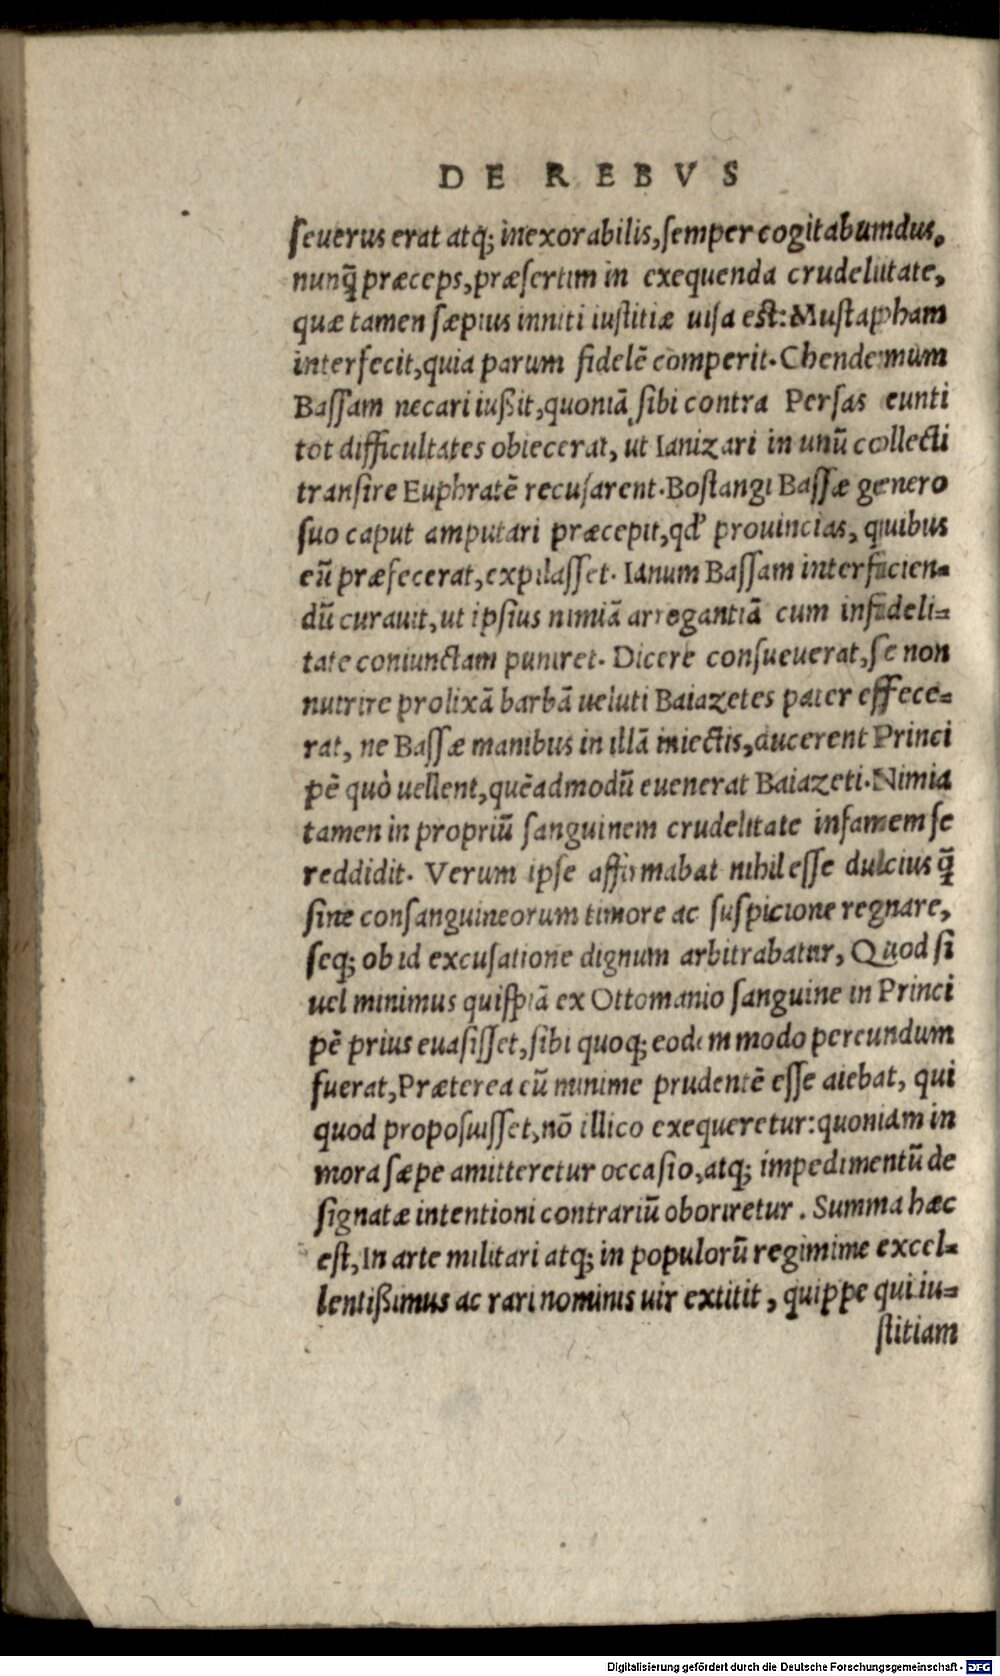 DE REBVS
ſeuerus erat atq; inexorabilis, ſemper cogitabumdus,
nunq̃ præceps, præſertim in exequenda crudelitate,
quæ tamen ſæpius inniti iuſtitiæ uiſa eſt: Muſtapham
interfecit, quia parum fidelẽ comperit. Chendemum
Baſſam necari iußit, quoniã ſibi contra Perſas eunti
tot difficultates obiecerat, ut Ianizari in unũ collecti
tranſire Euphratẽ recuſarent. Boſtangi Baſſæ genero
ſuo caput amputari præcepit, qd' prouincias, quibus
eũ præfecerat, expilaſſet. Ianum Baſſam interficien-
dũ curauit, ut ipſius nimiã arrogantiã cum infideli-
tate coniunctam puniret. Dicere conſueuerat, ſe non
nutrire prolixã barbã ueluti Baiazetes pater effece-
rat, ne Baſſæ manibus in illã iniectis, ducerent Princi
pẽ quò uellent, quẽadmodũ euenerat Baiazeti. Nimia
tamen in propriũ ſanguinem crudelitate infamem ſe
reddidit. Verum ipſe affirmabat nihil eſſe dulcius q̃
ſine conſanguineorum timore ac ſuſpicione regnare,
ſeq; ob id excuſatione dignum arbitrabatur, Quod ſi
uel minimus quiſpiã ex Ottomanio ſanguine in Princi
pẽ prius euaſiſſet, ſibi quoq; eodem modo pereundum
fuerat, Præterea eũ minime prudentẽ eſſe aiebat, qui
quod propoſuiſſet, nõ illico exequeretur: quoniam in
mora ſæpe amitteretur occaſio, atq; impedimentũ de
ſignatæ intentioni contrariũ oboriretur. Summa hæc
eſt, In arte militari atq; in populorũ regimime excel-
lentißimus ac rari nominis uir extitit, quippe qui iu-
ſtitiam
Digitalisierung gefördert durch die Deutsche Forschungsgemeinschaft - DFG